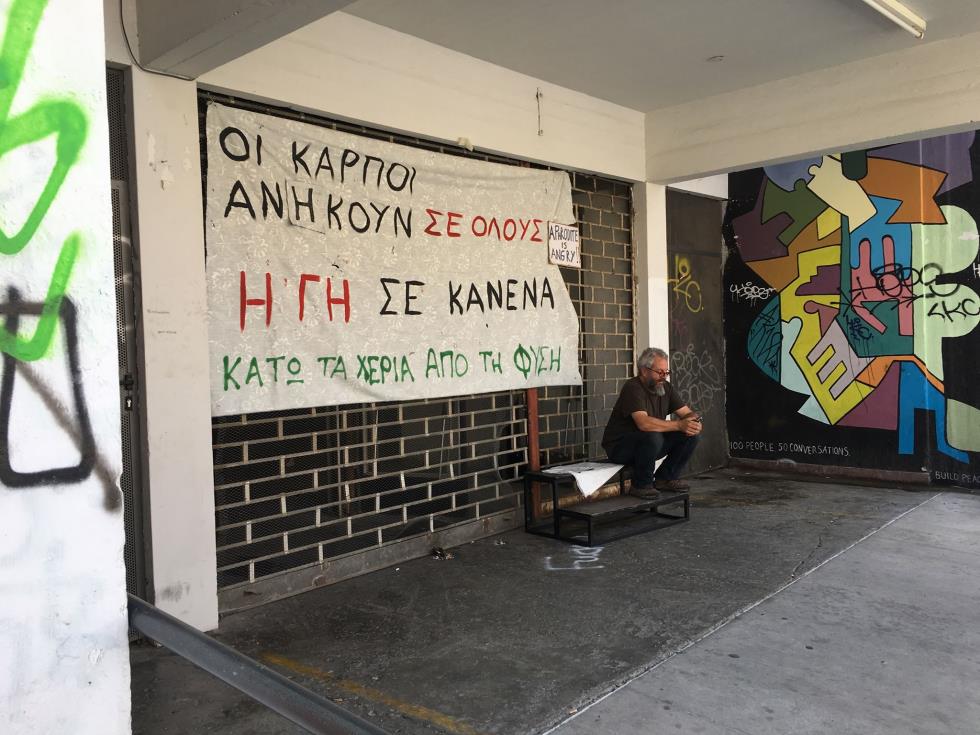 ΟΙ ΚΑΡΠΟΙ
ΑΝΗΚΟΥΝ ΣΕ ΟΛΟΥΣ!
APHRODITE
IS
ANGRY!
Η ΓΗ ΣΕ ΚΑΝΕΝΑ
ΚΑΤΩ ΤΑ ΧΕΡΙΑ ΑΠΟ ΤΗ ΦΥΣΗ
100 PEOPLE 50 CONVERSATIONS.
BUILD PEAC